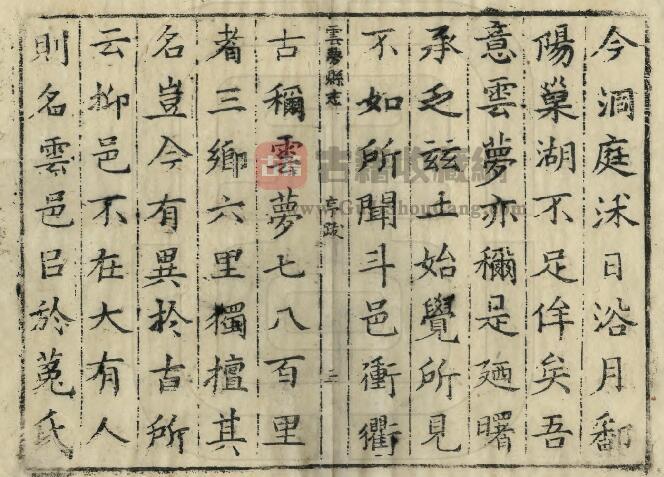 今洞庭沭日浴月鄱
陽巢湖不足侔矣吾
意雲夢亦穪是廼曙
承乏兹土始覺所見
不如所聞斗邑衝衢
雲夢縣志
二
古穪雲夢七八百里
者三鄉六里獨擅其
名豈今有異於古所
云抑邑不在大有人
則名雲邑吕於菟氏